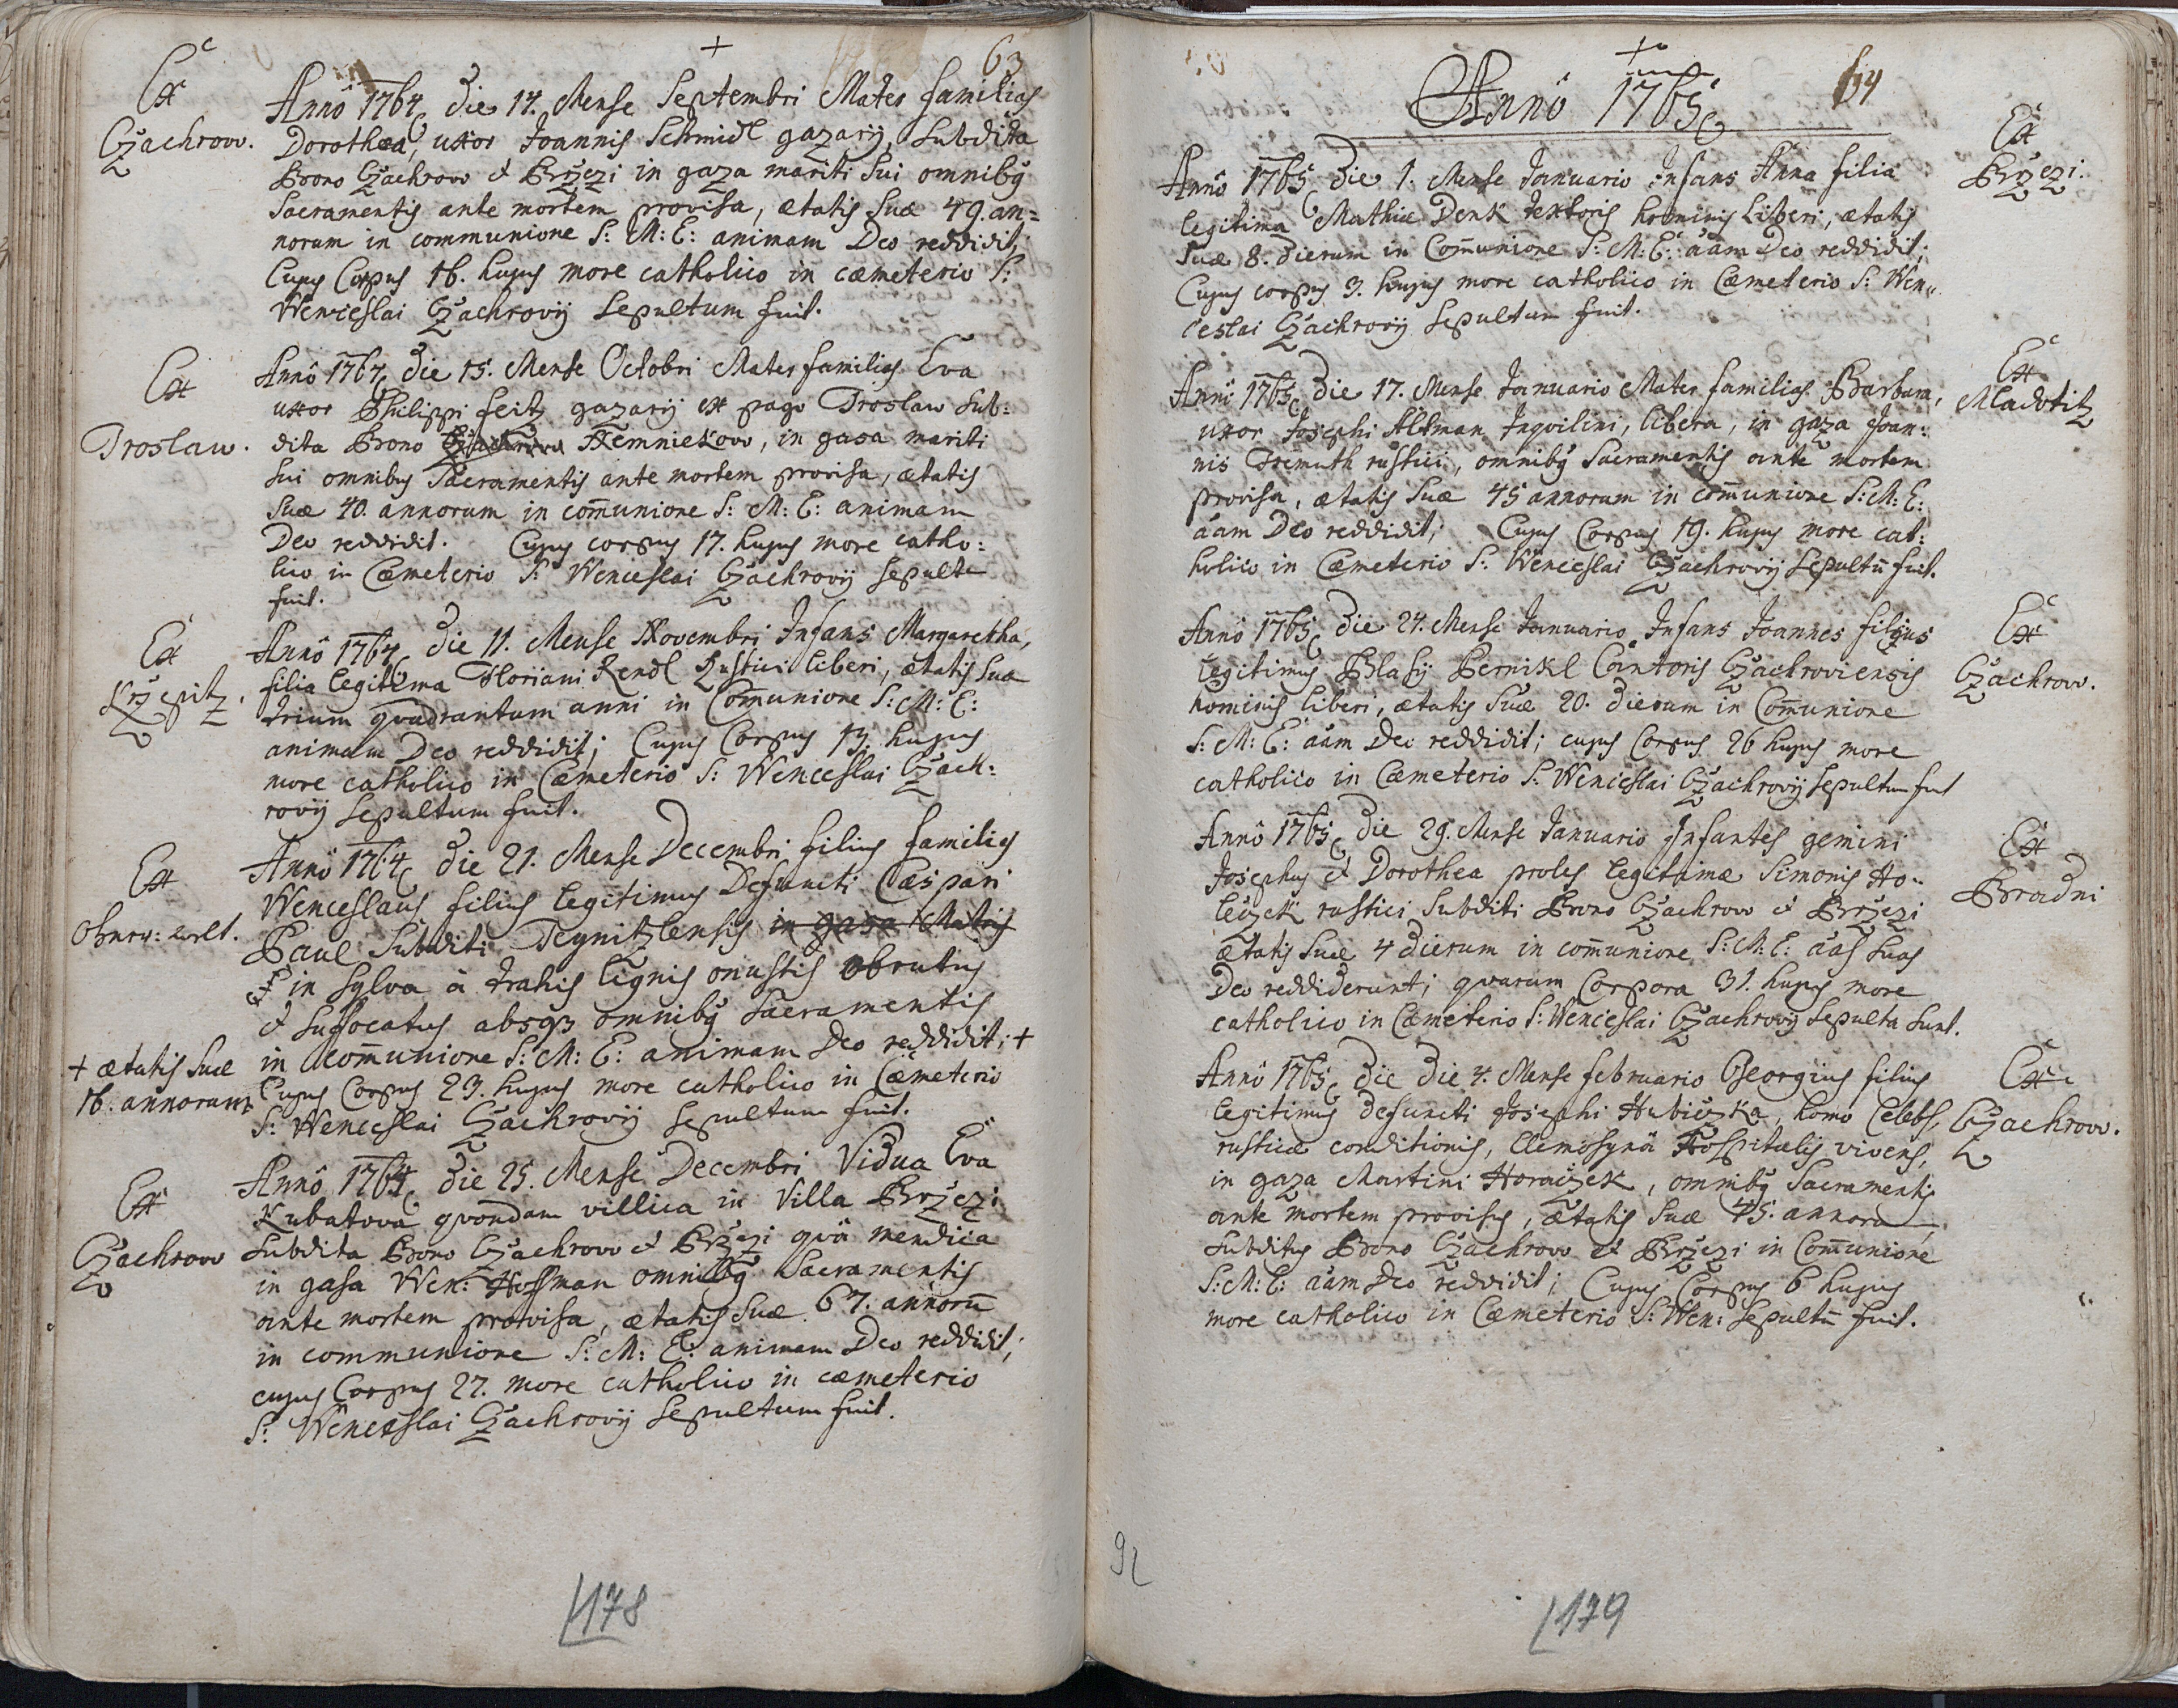 +
63
Ex
Czachrow.
Annô 1764 die 14. Mense Septembri Mater familias
Dorothea, uxor Joannis Schmidl gazarij, subdita
Brono Czachrow et Brzezi in gaza mariti sui omnibꝰ
Sacramentis ante mortem provisa, ætatis suæ 49. an=
norum in communione S: M: E: animam Deo reddidit,
Cujus Corpus 16. hujus more catholico in cæmeterio S:
Wenceslai Czachrovij sepultum fuit.
Ex
Troslaw.
Annô 1764 die 15. Mense Octobri Mater familias Eva
uxor Philippi feitz gazarij ex pago Troslaw sub=
dita Brono Nemniekow, in gasa mariti
sui omnibus Sacramentis ante mortem provisa, ætatis
suæ 40. annorum in com̄unione S: M: E: animam
Deo reddidit. Cujus corpus 17. hujus more catho=
lico in Cæmeterio S: Wenceslai Czachrovij sepultū
fuit.
Ex
Krzepitz.
Annô 1764 die 11. Mense Novembri Infans Margaretha,
filia legitima Floriani Rendl Rustici liberi, ætatis suæ
trium quadrantum anni in Com̄unione S: M: E:
animam Deo reddidit; Cujus Corpus 13. hujus
more catholico in Cæmeterio S: Wenceslai Czach=
rovij sepultum fuit.
Ex
Annô 1764 die 21. Mense Decembri filius familias
Wenceslaus filius legitimus Defuncti Caspari
Paul Subditi Teynitzlensis in gasa Matris
in sylva à trahis lignis onustis obrutus
et suffocatus absqꝫ omnibꝰ Sacramentis
in com̄unione S: M: E: animam Deo reddidit; +
+ ætatis suæ
16. annorum
Cujus Corpus 23. hujus more catholico in Cæmeterio
S: Wenceslai Czachrovij sepultum fuit.
Ex
Czachrow
Annô 1764 die 25. Mense Decembri Vidua Eva
Kubatova quondam villica in Villa Brzezi
subdita Brono Czachrow et Brzezi quâ mendica
in gasa Wen: Hoffman omnibꝰ Sacramentis
ante mortem provisa, ætatis suæ 67. annorū
in communione S: M: E: animam Deo reddidit;
cujus Corpus 27. more catholico in cæmeterio
S: Wenceslai Czachrovij sepultum fuit.
178
+
64
Annô 1765
Ex
Brzezi.
Annô 1765 die 1. Mense Januario Infans Anna filia
legitima Mathiæ Denk textoris hominis liberi, ætatis
suæ 8. dierum in Com̄unione S: M: E: aam Deo reddidit;
Cujus corpus 3. hujus more catholico in Cæmeterio S: Wen=
ceslai Czachrovij sepultum fuit.
Ex
Mladotitz
Annô 1765 die 17. Mense Januario Mater familias Barbara,
uxor Josephi Altman Inqvilini, libera, in gaza Joan=
nis Tremuth rustici, omnibꝰ Sacramentis ante mortem
provisa, ætatis suæ 45 annorum in com̄unione S: M: E:
aam Deo reddidit; Cujus Corpus 19. hujus more cat=
holico in Cæmeterio S: Wenceslai Czachrovij sepultū fuit.
Ex
Czachrow.
Annô 1765 die 24. Mense Januario Infans Joannes filius
legitimus Blasij Pernikl Cantoris Czachroviensis
hominis liberi, ætatis suæ 20. dierum in Com̄unione
S: M: E: aam Deo reddidit; cujus Corpus 26 hujus more
catholico in Cæmeterio S: Wenceslai Czachrovij sepultum fuit
Ex
Bradni
Annô 1765 die 29. Mense Januario Infantes gemini
Josephus et Dorothea proles legitimæ Simonis Ho=
leczek rustici subditi Brono Czachrow et Brzezi
ætatis suæ 4 dierum in com̄unione S: M: E: aas suas
Deo reddiderunt; quarum Corpora 31. hujus more
catholico in Cæmeterio S: Wenceslai Czachrovij sepulta sunt.
Ex
Czachrow.
Annô 1765 die die 4. Mense februario Georgius filius
legitimus defuncti Josephi Hubiczka, homo Celebs,
rusticæ conditionis, Elemosynâ Hospitalis vivens,
in gaza Martini Horaczek, omnibꝰ Sacramentis
ante mortem provisus, ætatis suæ 45. annorū
subditus Brono Czachrow et Brzezi in Com̄unione
S: M: E: aam Deo reddidit; Cujus Corpus 6 hujus
more catholico in Cæmeterio S: Wen: sepultū fuit.
179